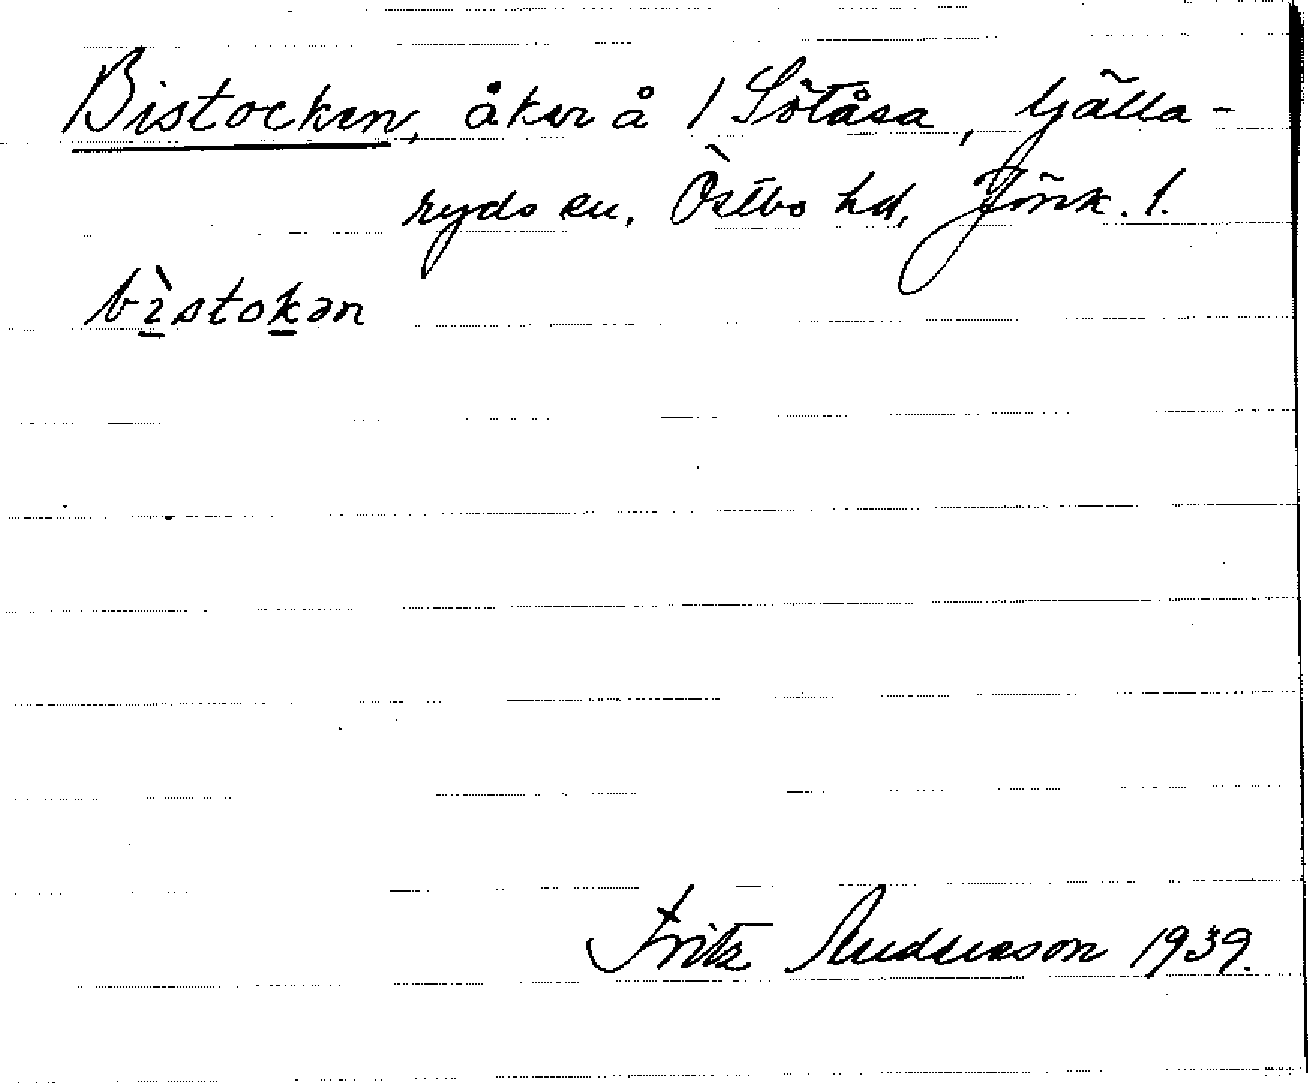 Bistocken, åker å 1 Sötåsa, Gälla-
ryds sn. Östbo hd, Jönk. l.
bìstokən
Fritz Andersson 1939.